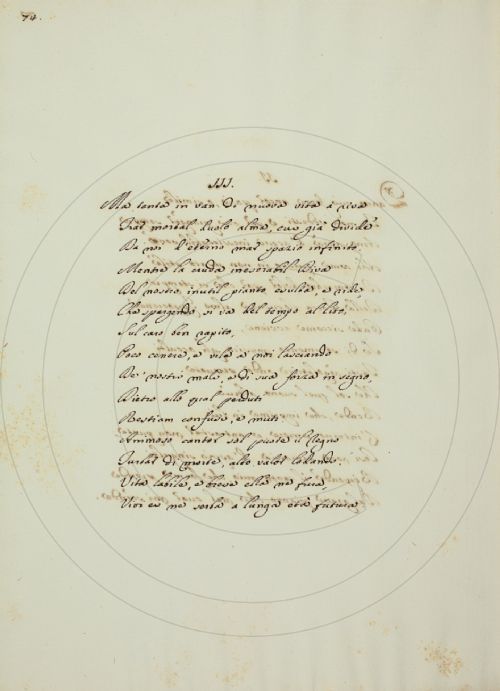 74.
III.
Ma tenta in van di nuova vita a riva
Trar mortal duolo alma, cui già divide
Da noi l'eterno mar spazio infinito.
Mentre la cruda inesorabil Diva
Del nostro inutil pianto esulta, e ride,
Che spargendo si va del tempo al lito,
Sul caro ben rapito,
Poco cenere, e vile a noi lasciando
De' nostri mali, e di sua forza in segno,
Dietro allo qual perduti
Restiam confusi, e muti.
Animoso cantor sol puote il
Furar di morte, alto valor
Vita labile, e breve ella ne fura,
Voi ne serba a lunga età futura